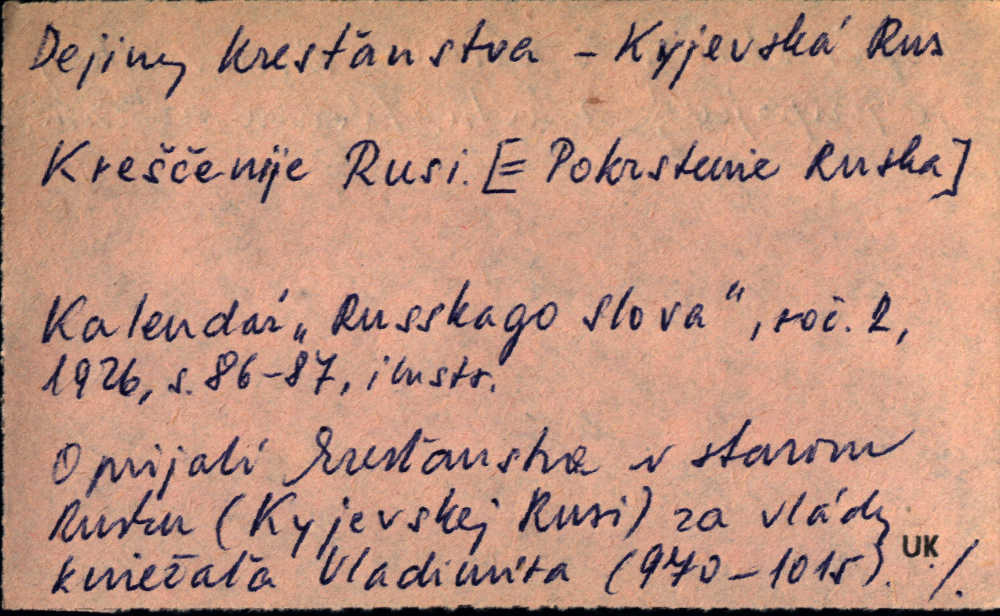 Dejiny kresťanstva - Kyjevská Rus
Kreščenije Rusi. [= Pokrstenie Ruska]
Kalendář „Russkago Slova", roč. 2,
1926, s. 86-87, ilustr.
O prijatí kresťanstva v starom
Rusku (Kyjevskej Rusi) za vlády
kniežaťa Vladimíra (970-1015). ./.
UK